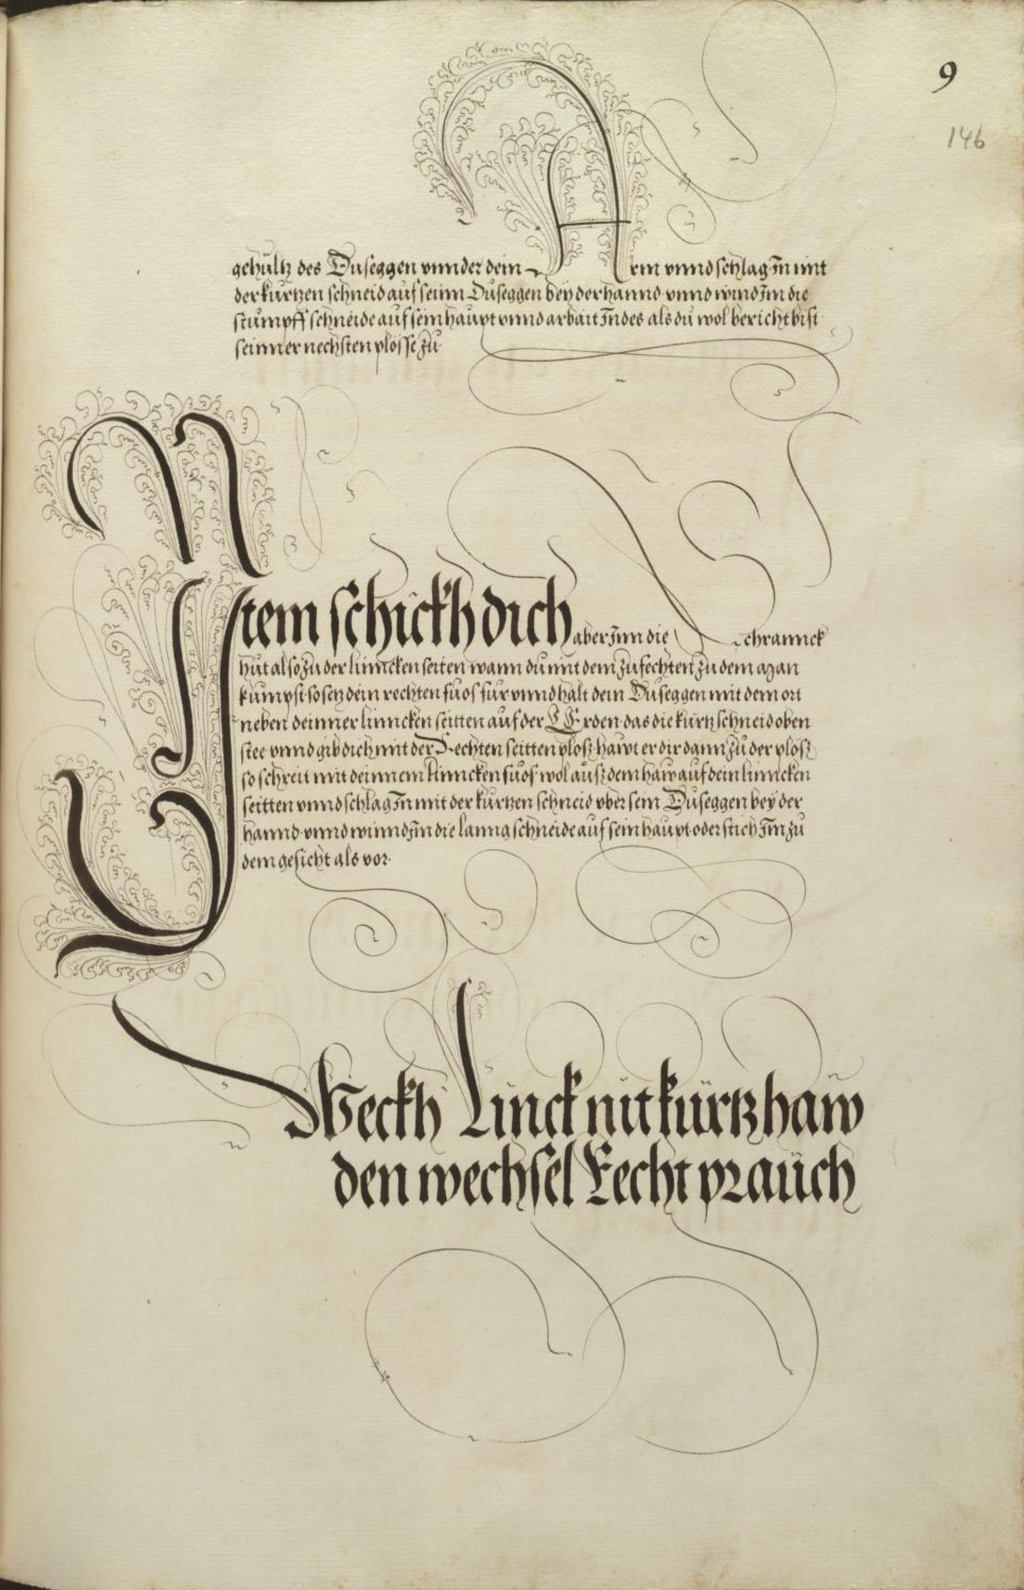 9
146
gehültz des Duseggen vnnder dein Arm vnnd schlag Jn mit
der kurtzen schneid auf seinn Duseggen bey der hannd vnnd wind Jm die
stumpff schneide auf sein haupt vnnd arbait Jndes als du wol bericht bist
seinner nechsten plosse zu
Item schickh dich aber Jnn die Schrannck
hut also zu der linncken seiten wann du mit dem zufechten zu dem Man
kumpst so setz dein rechten fuos fur vnnd halt dein Duseggen mit dem ort
neben deinner linncken seitten auf der Erden das die kurtz schneid oben
stee vnnd gib dich mit der Rechten seitten plosz hawt er dir dann zu der plosz
so schreit mit deinnem linncken fuos wol ausz dem haw auf dein linncken
seitten vnnd schlag Jn mit der kurtzen schneid vber sein Duseggen bey der
hannd vnnd winnd Jm die lanng schneide auf sein haupt oder stich Jm zu
dem gesicht als vor
Weckh Linck nit kürtz haw
den wechsel Fecht prauch